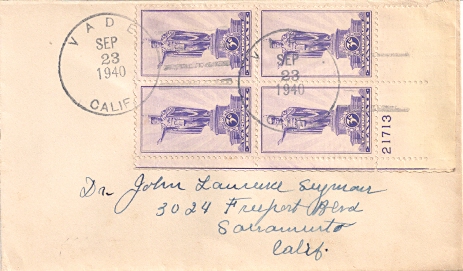 VADE
SEP
23
1940
CALIF
SEP
23
1940
21713
Dr. John Laurence Seymour
3024 Freeport Blvd
Sacramento
Calif.